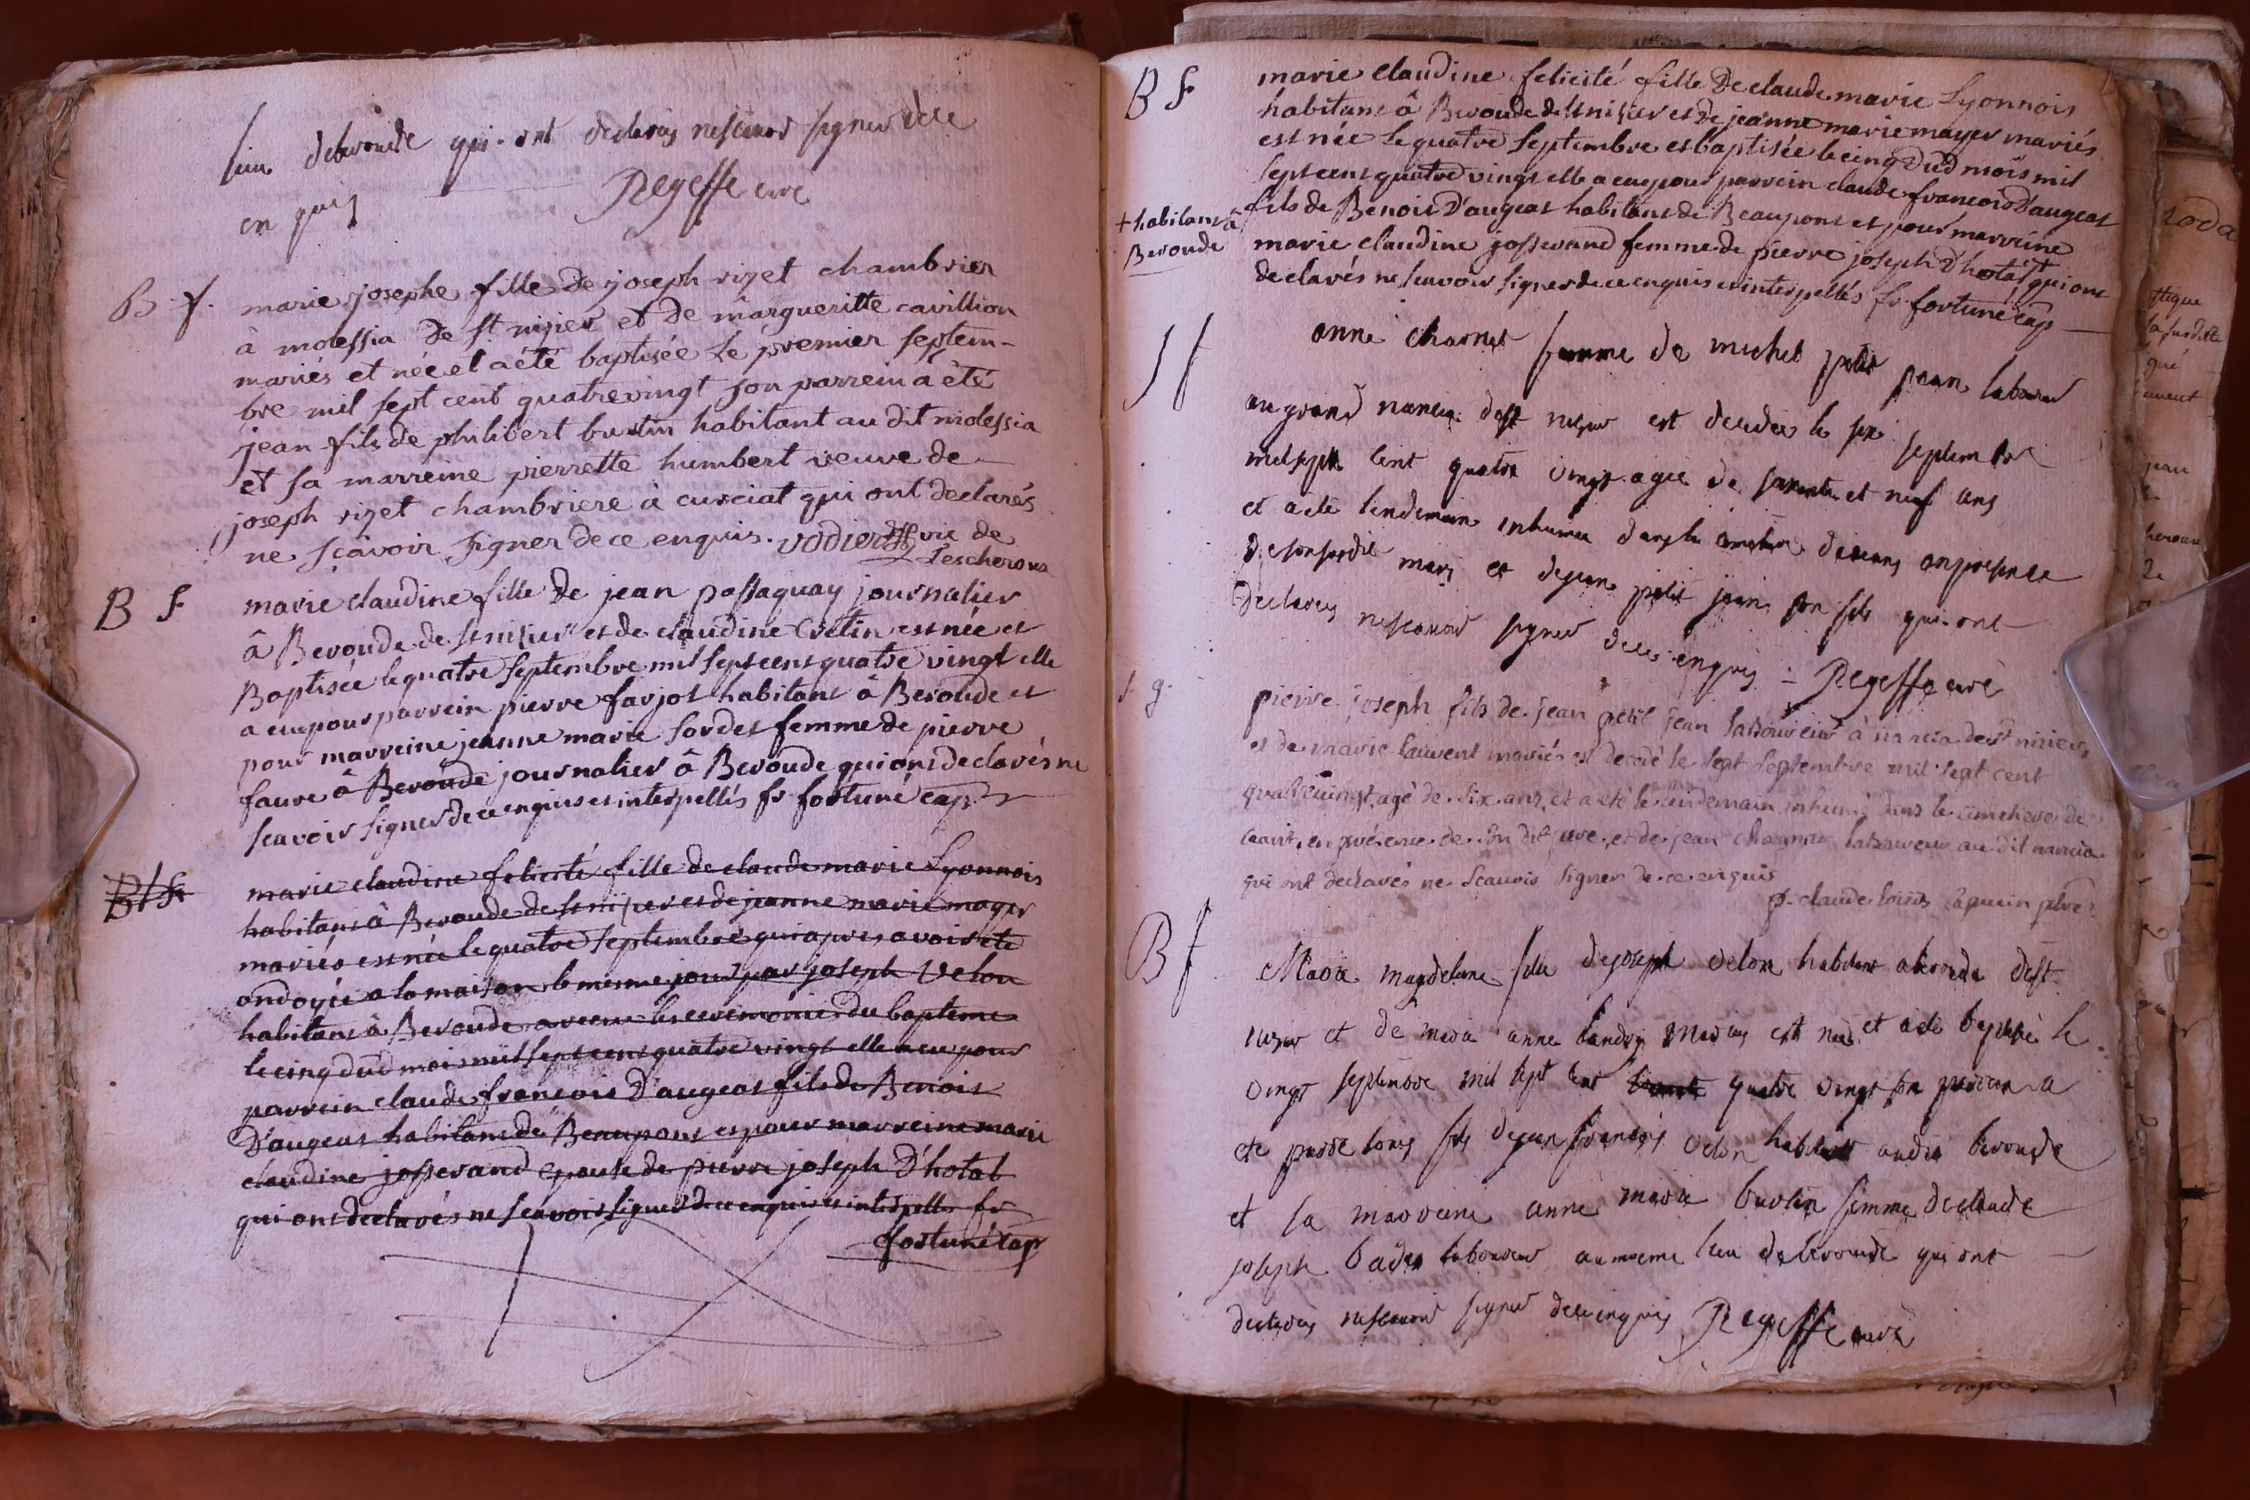 lieu deberoude qui ont declarés nescavoir signer dece
enquis Regeffe curé
B. f. marie josephe fille de joseph rizet chambrier
à molessia de st nizier et de margueritte cavillion
mariés et née et a été baptisée le premier septem-
bre mil sept cent quatrevingt son parrein a été
jean fils de philibert burtin habitant au dit molessia
et sa marreine pierrette humbert veuve de
joseph rizet chambriere à curciat qui ont declarés
ne sçavoir signer de ce enquis. vodier vic de
Lescheroux
B F marie claudine fille de jean passaquay journalier
â Beroude de st nisier et de claudine Cretin est née et
Baptisée le quatre septembre mil sept cent quatre vingt elle
a eu pour parrein pierre farjot habitant â Beroude et
pour marreine jeanne marie sordet femme de pierre
faure â Beroude journalier â Beroude qui ont declarés ne
scavoir signer de ce enquis et interpellés fr fortuné cap
B f marie claudine felicité fille de claude marie Lyonnois
habitant â Beroude de st nisier et de jeanne marie mayer
mariés est née le quatre septembre qui apres avoir eté
ondoyée a la maison le meme jour par joseph Velon
habitant â Beroude a recue les ceremonies du bapteme
le cinq dud mois mil sept cent quatre vingt elle a eu pour
parrein claude francois D'augeat fils de Benoit
D'augeat habitant de Beaupont et pour marreine marie
claudine josserand epouse de pierre joseph D'hotal
qui ont declarés ne scavoir signer de ce enquis et interpellés fr
fortuné cap
B F marie claudine felicité fille De claude marie Lyonnois
habitant â Beroude de st nisier et de jeanne marie mayer mariés
est née le quatre septembre et baptisée le cinq dud mois mil
sept cent quatre vingt elle a eu pour parrein claude francois D'augeat
fils de Benoit D'augeat habitant de Beaupont et pour marreine
marie claudine josserand femme de pierre joseph D'hotal + qui ont
declarés ne scavoir signer de ce enquis et interpellés fr fortuné cap
+ habitant â
Beroude
S f anne charnet femme de michel petit jean laboureur
au grand nancia dest nizier est decedée le six septembre
mil sept cent quatre vingt agée de soixante et neuf ans
et a été lendemain inhumée dans le cimetiere deceans en presence
de son susdit mary et de jean petit jean son fils qui ont
declarés nescavoir signer dece enquis Regeffe curé
s. g. pierre joseph fils de jean petit jean laboureur à nancia de st nizier
et de marie laurent mariés est decedé le sept septembre mil sept cent
quatrevingt agé de six ans, et a été le lendemain inhumé dans le cimetiere de
ceant, en présence de son dit pere et de jean charnet laboureur au dit nancia
qui ont declarés ne scavoir signer de ce enquis
p. claude louis Capucin ptre
B f Marie magdelene fille de joseph velon habitant aberoude dest
nizier et de marie anne baudy mariés est née et a été baptisé le
vingt septembre mil sept cent quatre vingt son parrein a
ete pierre louis fils de jean françois velon habitant audit beroude
et sa marreine anne marie burtin femme de claude
joseph laboureur au meme lieu de beroude qui ont
declarés nescavoir signer dece enquis Regeffe curé